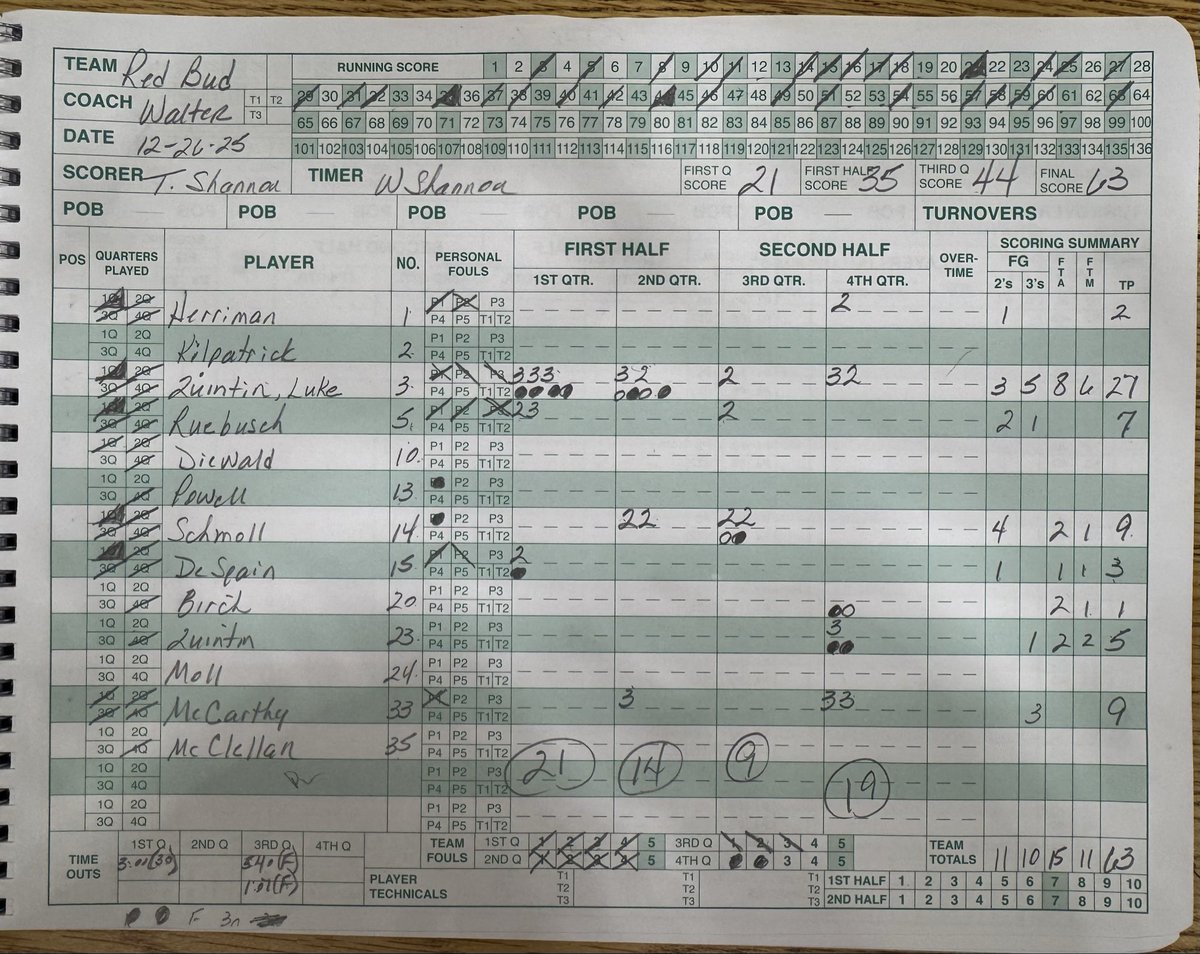 TEAM Red Bud RUNNING SCORE 1 2 3 4 5 6 7 8 9 10 11 12 13 14 15 16 17 18 19 20 21 22 23 24 25 26 27 28
COACH Walter T1 T2 T3 29 30 31 32 33 34 35 36 37 38 39 40 41 42 43 44 45 46 47 48 49 50 51 52 53 54 55 56 57 58 59 60 61 62 63 64
65 66 67 68 69 70 71 72 73 74 75 76 77 78 79 80 81 82 83 84 85 86 87 88 89 90 91 92 93 94 95 96 97 98 99 100
DATE 12-26-25 101 102 103 104 105 106 107 108 109 110 111 112 113 114 115 116 117 118 119 120 121 122 123 124 125 126 127 128 129 130 131 132 133 134 135 136
SCORER T. Shannon TIMER W Shannon FIRST Q SCORE 21 FIRST HALF SCORE 35 THIRD Q SCORE 44 FINAL SCORE 63
POB — POB — POB — POB — POB — TURNOVERS
POS QUARTERS PLAYED PLAYER NO. PERSONAL FOULS FIRST HALF SECOND HALF OVER-TIME SCORING SUMMARY
1ST QTR. 2ND QTR. 3RD QTR. 4TH QTR. FG 2's 3's FTA FTM TP
1Q 2Q 3Q 4Q Herriman 1 P1 P2 P3 P4 P5 T1 T2 2 1 2
1Q 2Q 3Q 4Q Kilpatrick 2 P1 P2 P3 P4 P5 T1 T2
1Q 2Q 3Q 4Q Quintin, Luke 3 P1 P2 P3 P4 P5 T1 T2 333 32 2 32 3 5 8 6 27
1Q 2Q 3Q 4Q Ruebusch 5 P1 P2 P3 P4 P5 T1 T2 23 2 2 1 7
1Q 2Q 3Q 4Q Diewald 10 P1 P2 P3 P4 P5 T1 T2
1Q 2Q 3Q 4Q Powell 13 P2 P3 P4 P5 T1 T2
1Q 2Q 3Q 4Q Schmoll 14 P2 P3 P4 P5 T1 T2 22 22 4 2 1 9
1Q 2Q 3Q 4Q DeSpain 15 P1 P2 P3 P4 P5 T1 T2 2 1 1 1 3
1Q 2Q 3Q 4Q Birch 20 P1 P2 P3 P4 P5 T1 T2 2 1 1
1Q 2Q 3Q 4Q Quintin 23 P1 P2 P3 P4 P5 T1 T2 3 1 2 2 5
1Q 2Q 3Q 4Q Moll 24 P1 P2 P3 P4 P5 T1 T2
1Q 2Q 3Q 4Q McCarthy 33 P1 P2 P3 P4 P5 T1 T2 3 33 3 9
1Q 2Q 3Q 4Q McClellan 35 P1 P2 P3 P4 P5 T1 T2
1Q 2Q 3Q 4Q P1 P2 P3 P4 P5 T1 T2 21 14 9 19
1Q 2Q 3Q 4Q P1 P2 P3 P4 P5 T1 T2
TIME OUTS 1ST Q 2ND Q 3RD Q 4TH Q TEAM FOULS 1ST Q 1 2 3 4 5 3RD Q 1 2 3 4 5 TEAM TOTALS 11 10 15 11 63
3:00(30) 3:40(F) 2ND Q 1 2 3 4 5 4TH Q 3 4 5
1:01(F) PLAYER TECHNICALS T1 T2 T3 T1 T2 T3 T1 T2 T3 1ST HALF 1 2 3 4 5 6 7 8 9 10
2ND HALF 1 2 3 4 5 6 7 8 9 10
F 30